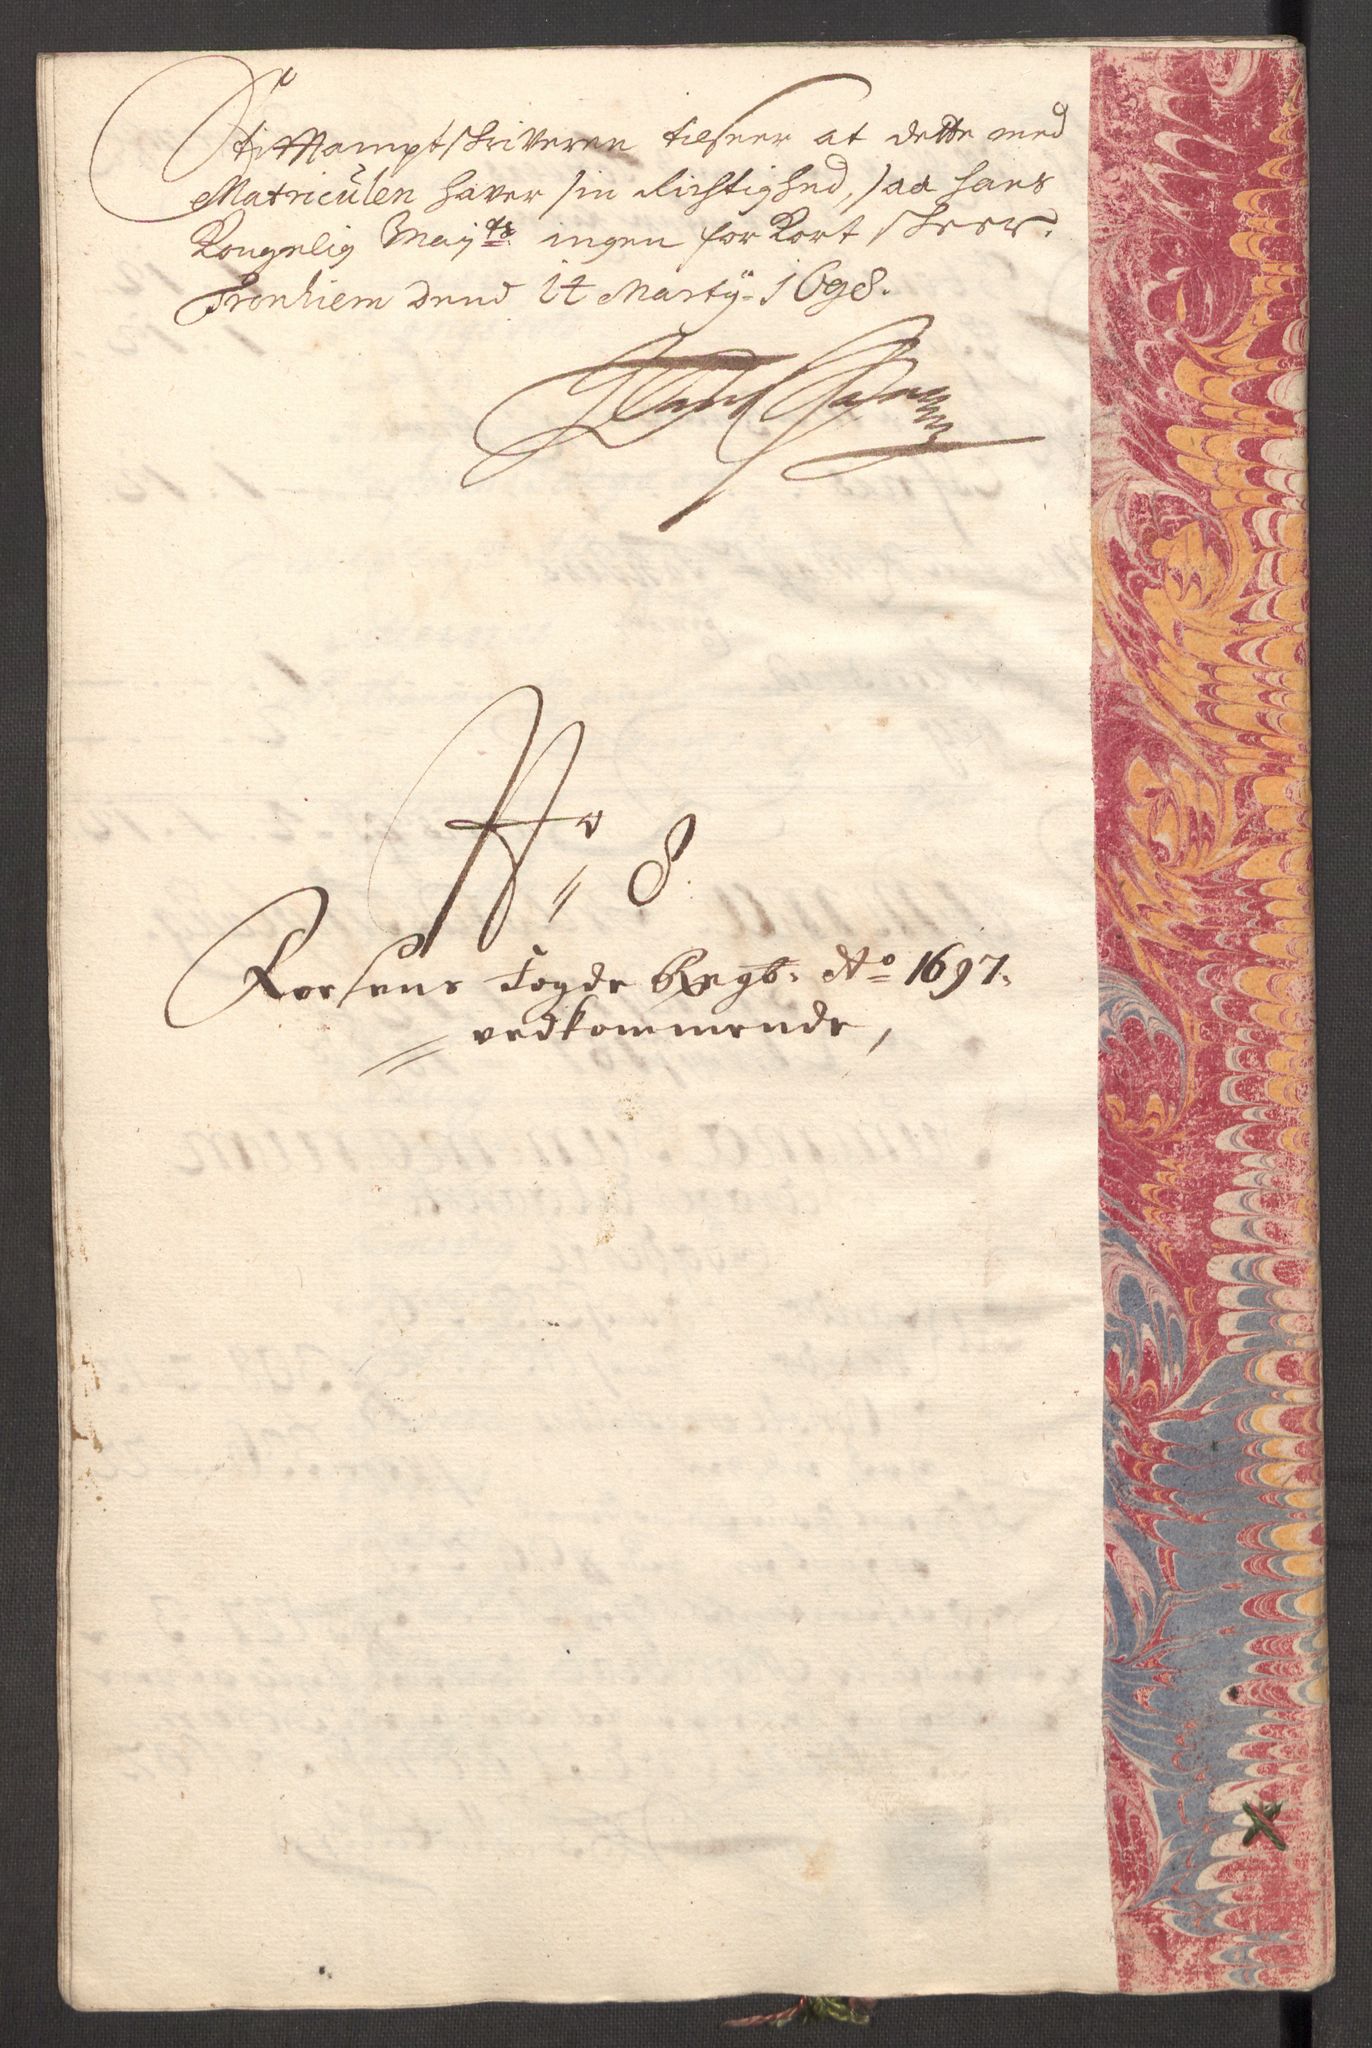 Stifftamptskriveren tilseer at dette med
Matriculen haver sin Richtighed, saa hans
Kongelig Mayts. ingen forkort skeer.
Tronhiem Dend 14 Marty 1698.
No 8
Foesens Fogde Regb. Ao 1697.
vedkommende,